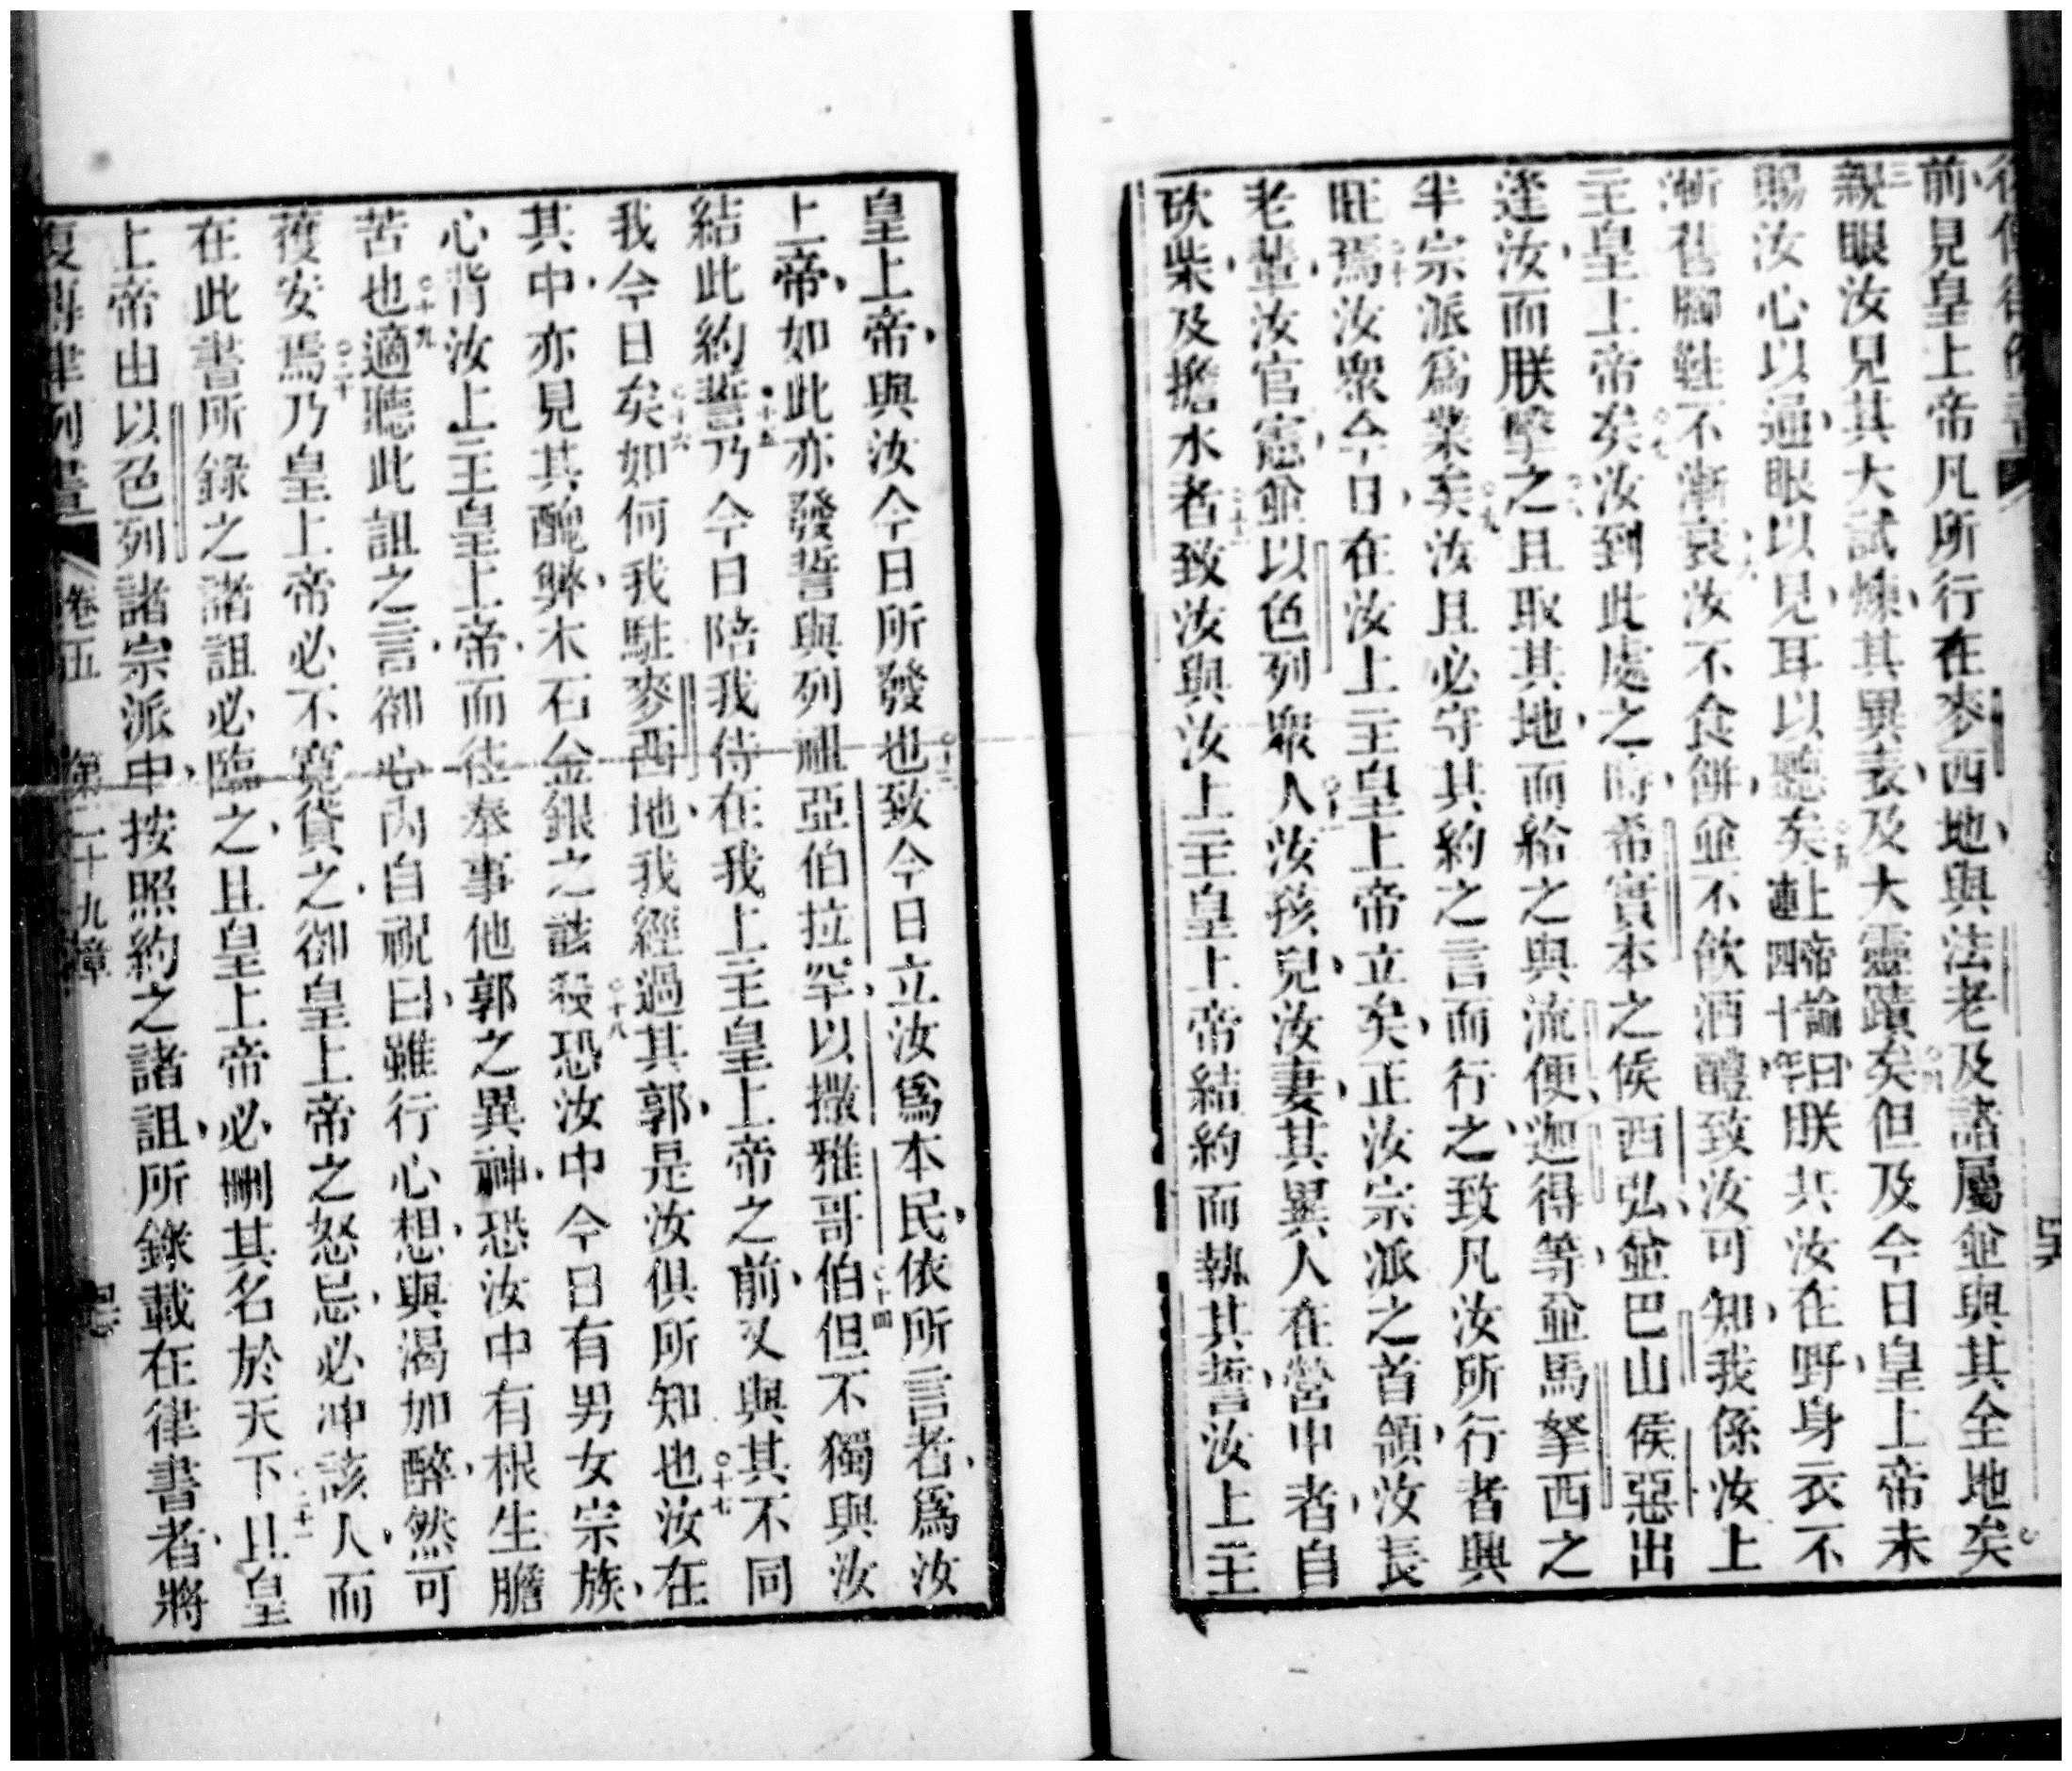 前見皇上帝凡所行在麥西地與法老及諸屬並與其全地矣
三
親眼汝見其大試煉其異表及大靈蹟矣但及今日皇上帝未
〇四
賜汝心以通眼以見耳以聽矣上帝諭曰朕共汝在野身衣不
〇五
連四十年
漸舊腳鞋不漸衰汝不食餅並不飲酒醴致汝可知我係汝上
〇六
主皇上帝矣汝到此處之時希實本之侯西弘並巴山侯惡出
〇七
逢汝而朕擊之且取其地而給之與流便迦得等並馬拏西之
〇八
半宗派為業矣汝且必守其約之言而行之致凡汝所行者興
〇九
旺焉汝眾今日在汝上主皇上帝立矣正汝宗派之首領汝長
〇十
老輩汝官憲並以色列眾人汝孩兒汝妻其異人在營中者自
〇十一
砍柴及擔水者致汝與汝上主皇上帝結約而執其誓汝上主
〇十二
皇上帝與汝今日所發也致今日立汝為本民依所言者為汝
〇十三
上帝如此亦發誓與列祖亞伯拉罕以撒雅哥伯但不獨與汝
〇十四
結此約誓乃今日陪我侍在我上主皇上帝之前又與其不同
〇十五
我今日矣如何我駐麥西地我經過其郭是汝俱所知也汝在
〇十六
〇十七
其中亦見其醜弊木石金銀之該殺恐汝中今日有男女宗族
〇十八
心背汝上主皇上帝而往奉事他郭之異神恐汝中有根生膽
苦也適聽此詛之言卻心內自祝曰雖行心想與渴加醉然可
〇十九
獲安焉乃皇上帝必不寬貸之卻皇上帝之怒忌必冲該人而
〇二十
在此書所錄之諸詛必臨之且皇上帝必刪其名於天下且皇
〇二十一
上帝由以色列諸宗派中按照約之諸詛所錄載在律書者將
復傳律列書 卷五 第二十九章